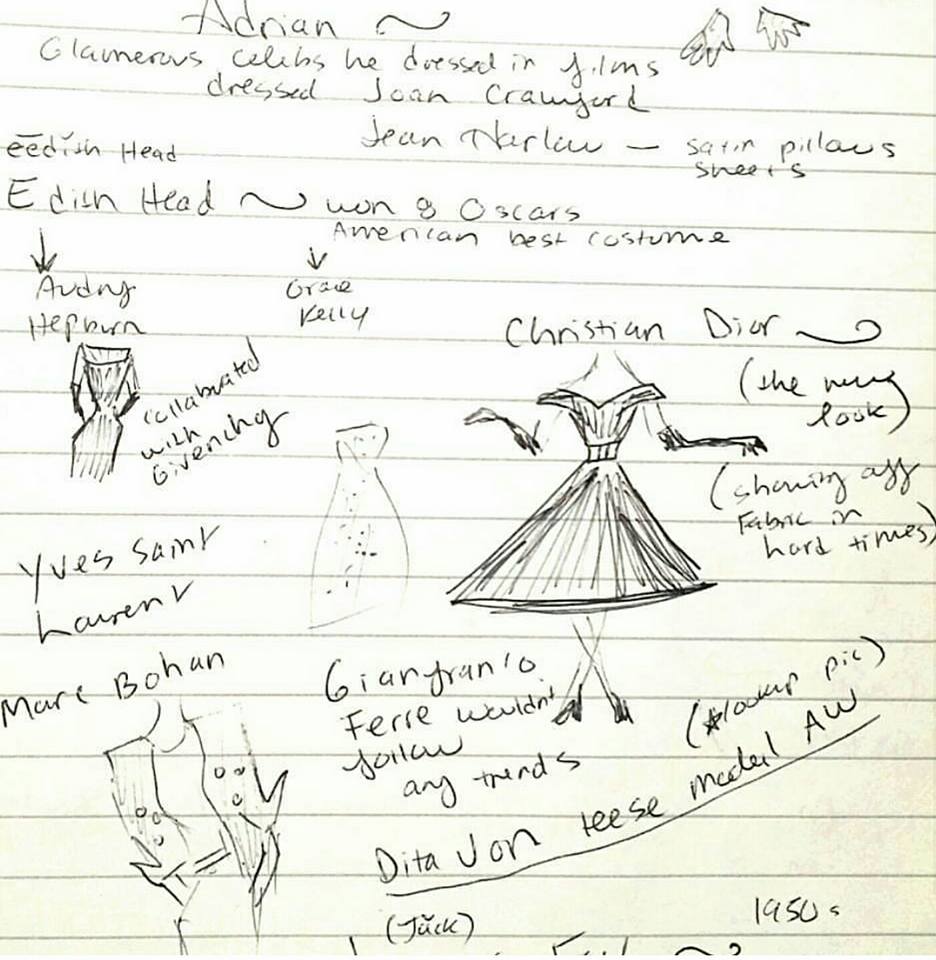 Adrian ~
Glamerous celebs he dressed in films
dressed Joan Crawford
Jean Harlow — satin pillows
sheets
eedish Head
Edish Head ~ won 8 Oscars
American best costume
Audry
Hepburn
Grace
Kelly
collabrated
with
Givenchy
Christian Dior ~
(the new
look)
(showing off
Fabric in
hard times)
Yves Saint
Laurent
Marc Bohan
Gianfranco
Ferre wouldn't
follow
any trends
(lookup pic)
Dita Von teese model AW
(Jack)
1950s